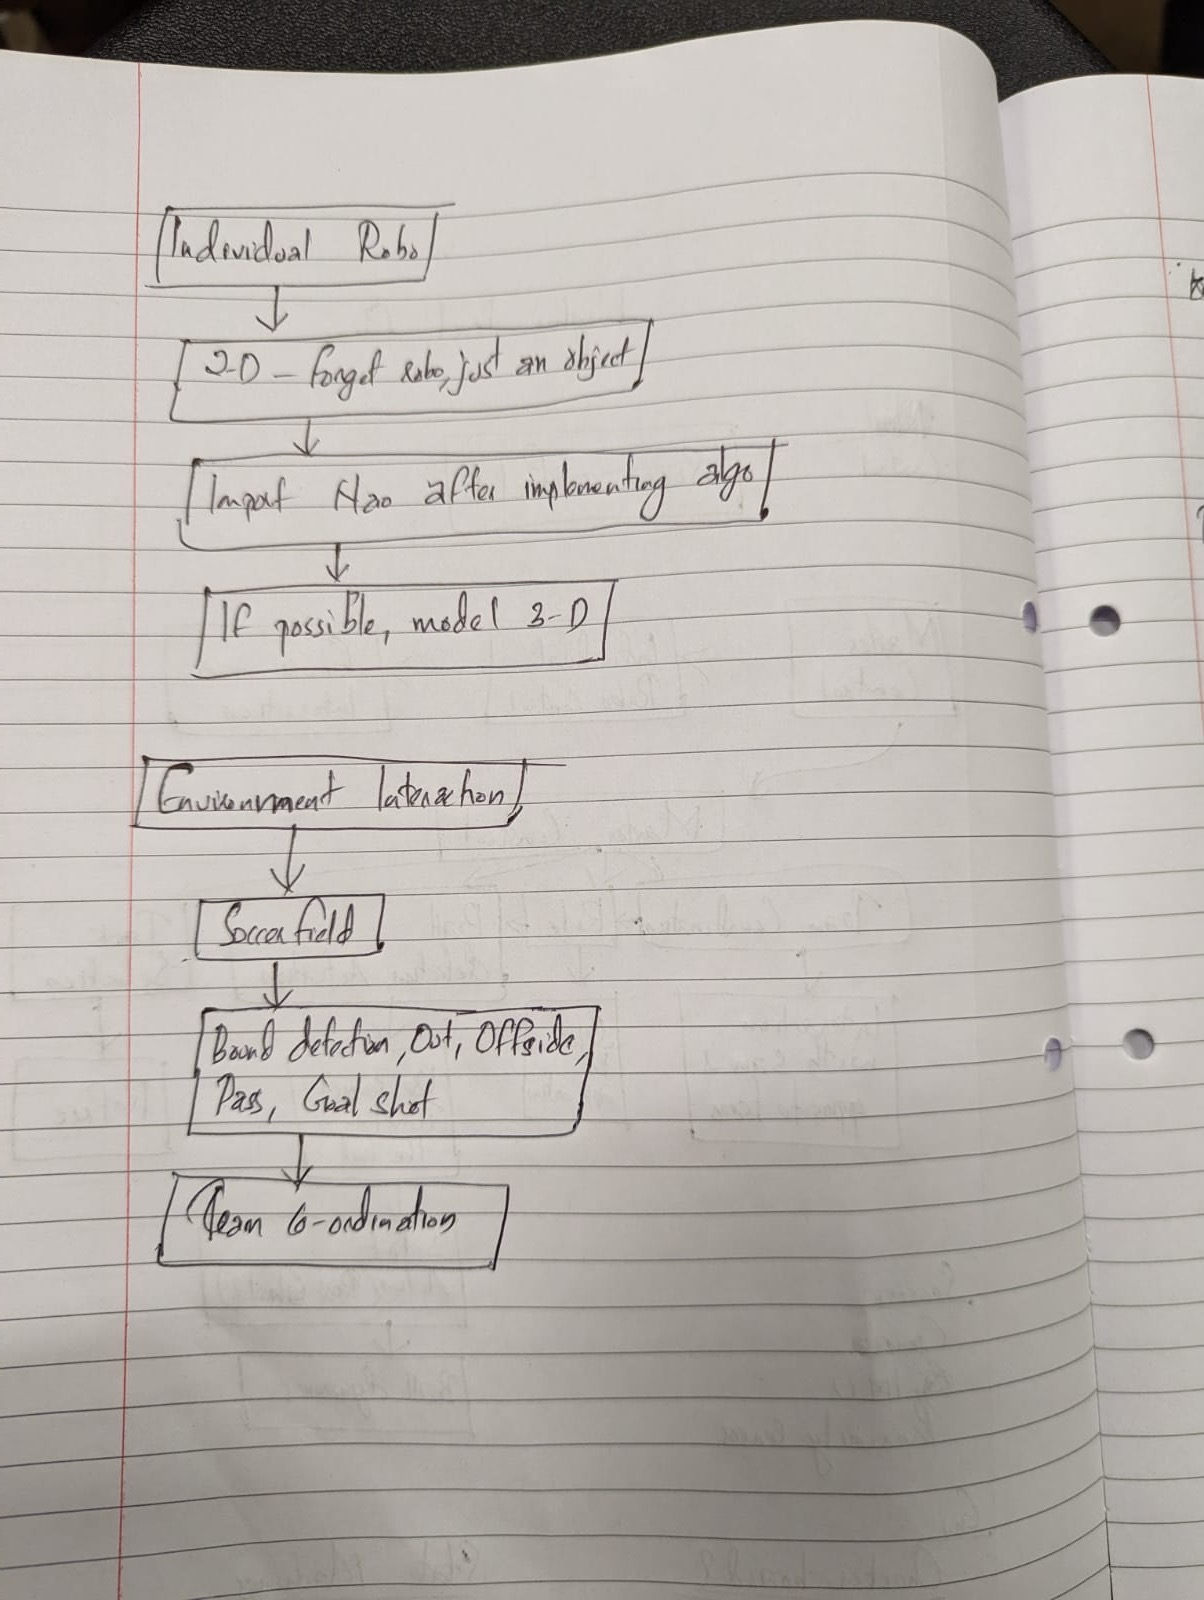 Individual Robo
2-D - forget robo, just an object
Import Nao after implementing algo
If possible, model 3-D
Environment Interaction
Soccer field
Bound detection, Out, Offside,
Pass, Goal shot
Team Co-ordination